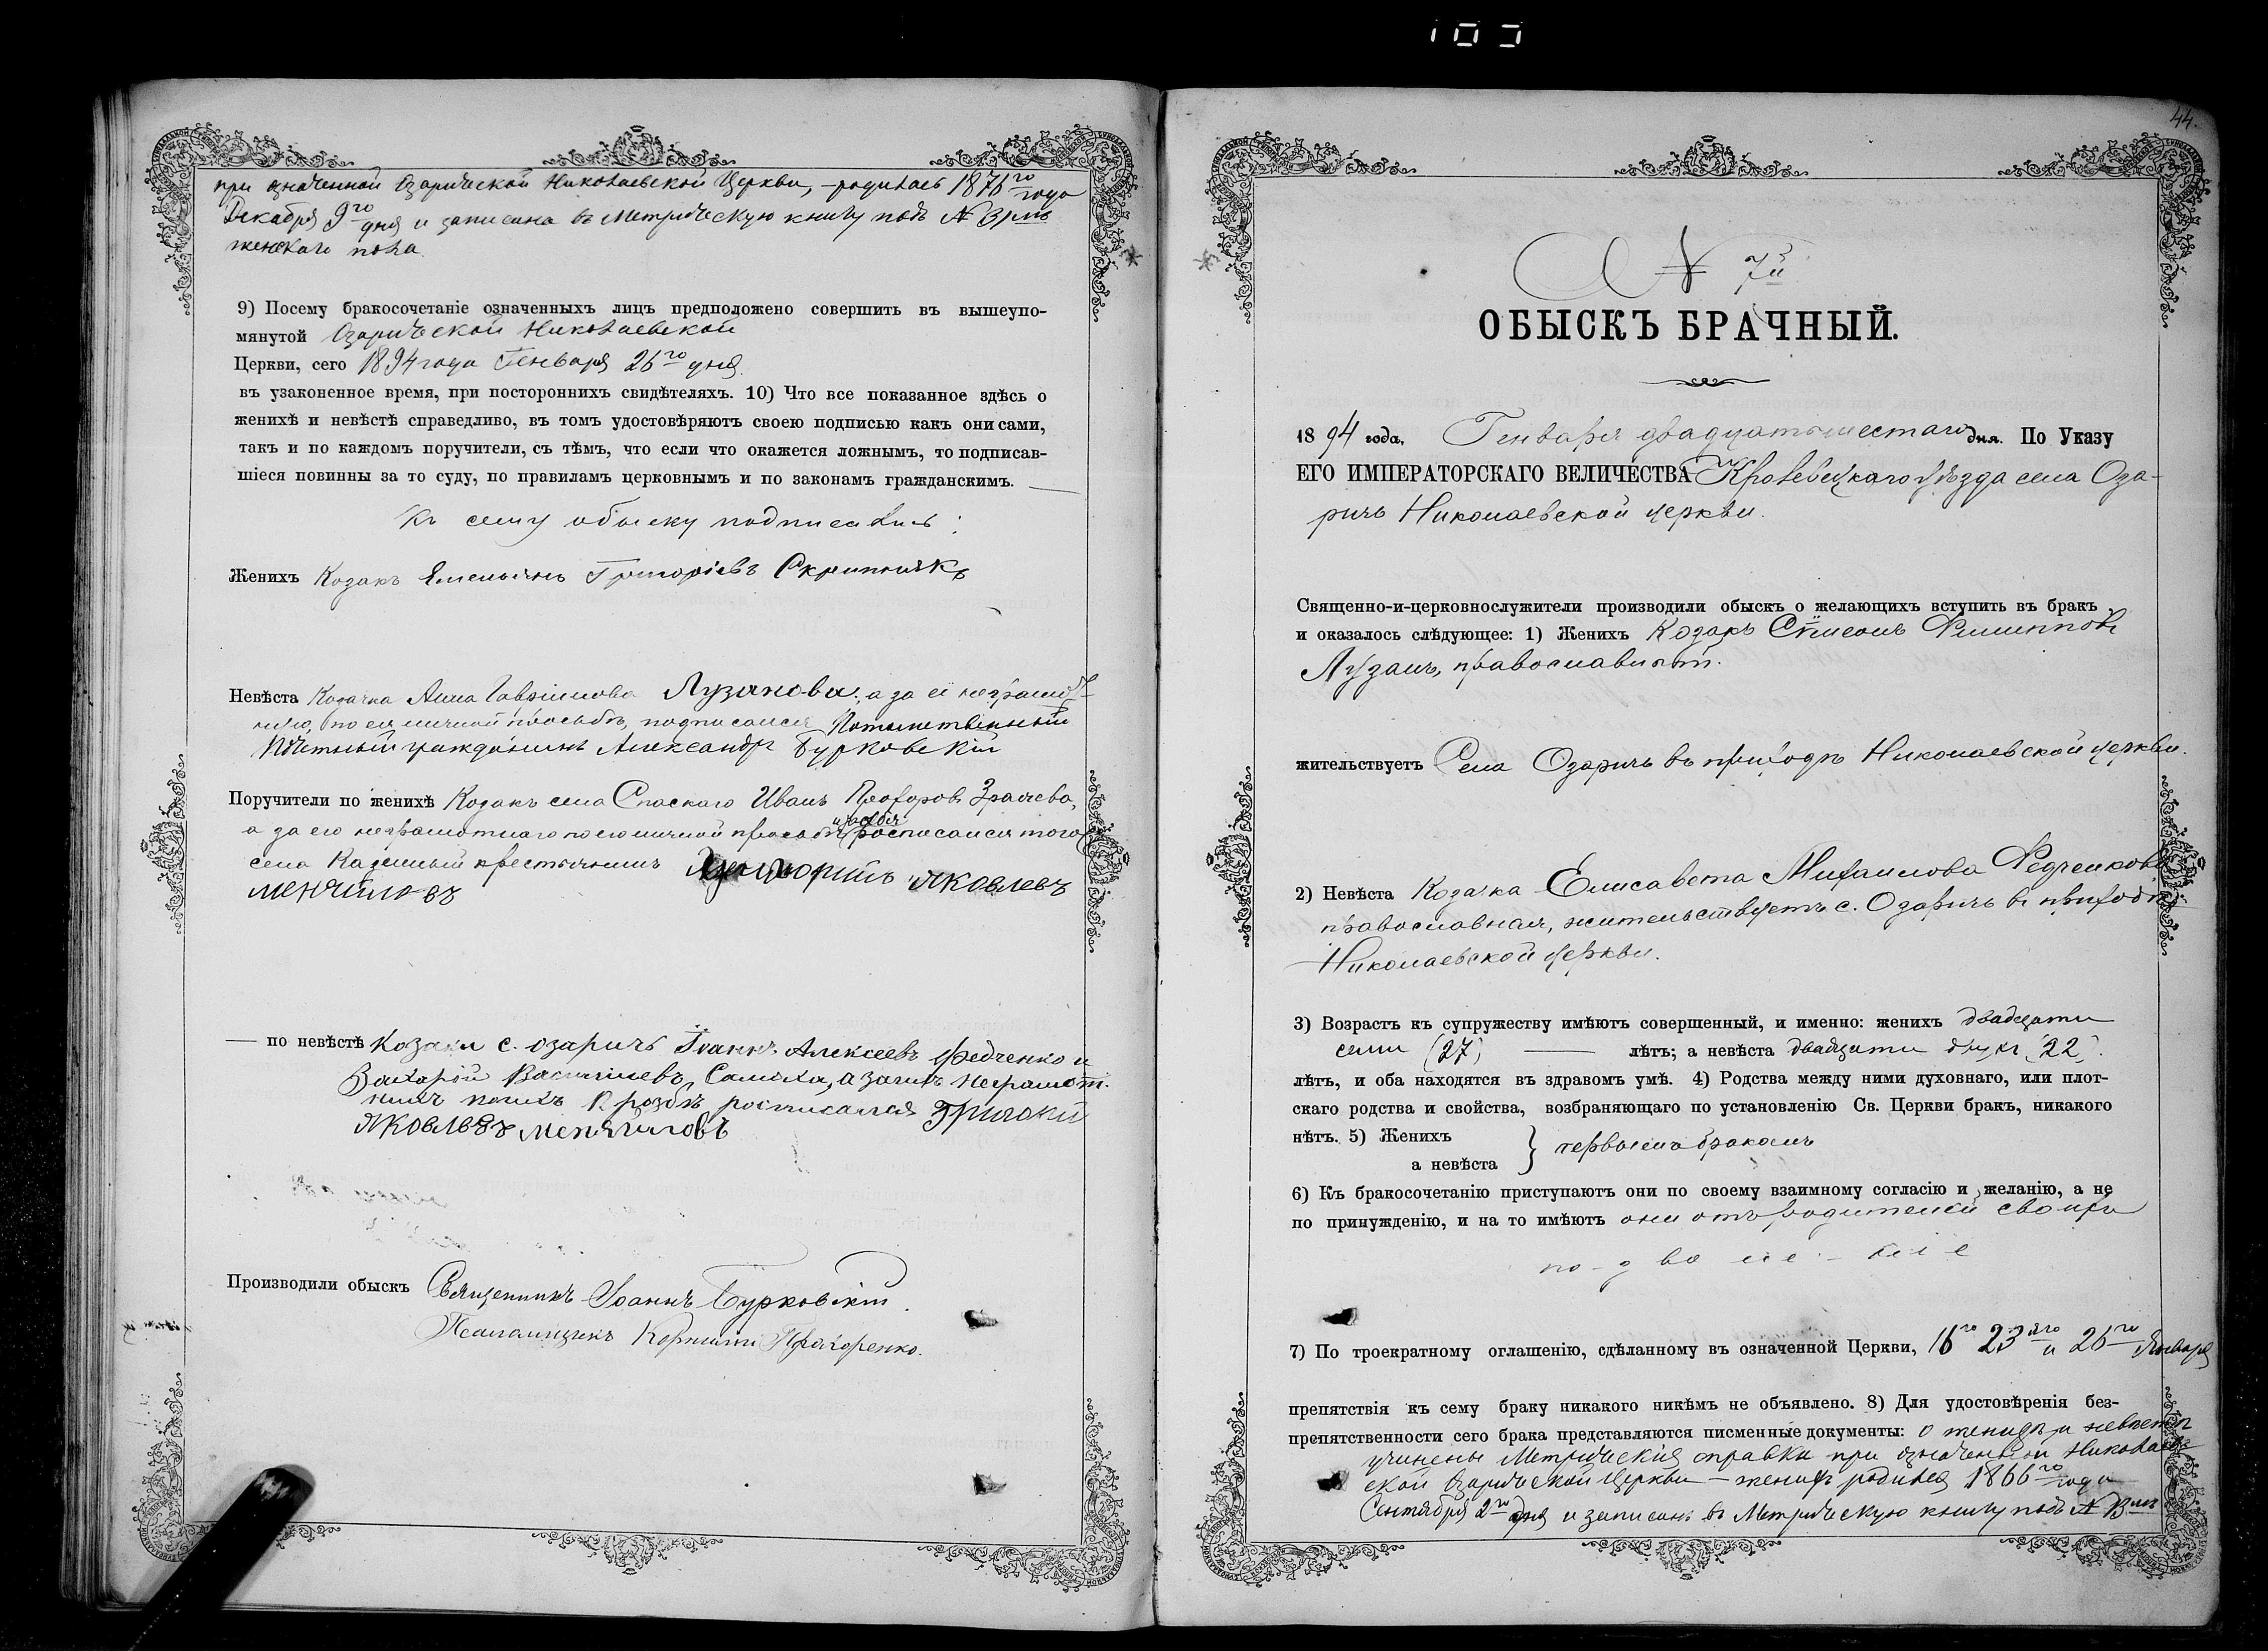 при означенной Озарической Николаевской Церкви, – родилась 1876го года
Декабря 9го дня и записана въ Метрическую книгу подъ №
женскаго пола
9) Посему бракосочетаніе означенныхъ лицъ предположено совершить въ вышеупо-
мянутой Озарической Николаевской
Церкви, сего 1894 года Генваря 26го дня
въ узаконенное время, при постороннихъ свидѣтеляхъ. 10) Что все показанное здѣсь о
женихѣ и невѣстѣ справедливо, въ томъ удостовѣряютъ своею подписью какъ они сами,
такъ и по каждомъ поручители, съ тѣмъ, что если что окажется ложнымъ, то подписав-
шіеся повинны за то суду, по правиламъ церковнымъ и по законамъ гражданскимъ.
Къ сему обыску подписались:
Женихъ Козакъ Емельянъ Григоріевъ Скрипникъ
Невѣста Козачка Анна Гавріилова Лузанова, а за её неграмот-
ную, по ея личной просьбѣ, подписался Потомственный
Почетный гражданинъ Александръ Бурковскій
Поручители по женихѣ Козакъ села Спаскаго Иванъ Прохоровъ
а за его неграмотнаго по его личной просьбѣ росписался того
села Казенный крестьянинъ Григорій Яковлевъ
Менчиловъ
— по невѣстѣ Козаки с. Озаричъ Іоаннъ Алексеевъ Федченко и
Захарій Васильевъ а за нихъ неграмот.
ныхъ по ихъ прозбѣ росписался Григорій
Яковлевъ Менчиловъ
Производили обыскъ Священникъ Іоаннъ Бурковскій.
Псаломщикъ Корнилій Прохоренко.
44.
№ 7й
ОБЫСКЪ БРАЧНЫЙ.
1894 года, Генваря двадцать шестаго дня. По Указу
ЕГО ИМПЕРАТОРСКАГО ВЕЛИЧЕСТВА Кролевецкаго уѣзда села Оза-
ричъ Николаевской церкви.
Священно-и-церковнослужители производили обыскъ о желающихъ вступить въ бракъ
и оказалось слѣдующее: 1) Женихъ Козакъ Сѵмеонъ Филипповъ
Лузанъ, православный.
жительствуетъ Села Озаричъ въ приходѣ Николаевской церкви.
2) Невѣста Козачка Елисавета Михаилова Федченкова
православная, жительствуетъ с. Озаричъ въ приходѣ
Николаевской церкви.
3) Возрастъ къ супружеству имѣютъ совершенный, и именно: женихъ двадцати
семи (27) — лѣтъ; а невѣста двадцати двухъ (22).
лѣтъ, и оба находятся въ здравомъ умѣ. 4) Родства между ними духовнаго, или плот-
скаго родства и свойства, возбраняющаго по установленію Св. Церкви бракъ, никакого
нѣтъ. 5) Женихъ
а невѣста } первымъ бракомъ
6) Къ бракосочетанію приступаютъ они по своему взаимному согласію и желанію, а не
по принужденію, и на то имѣютъ они отъ родителей своихъ
по-зволеніе
7) По троекратному оглашенію, сдѣланному въ означенной Церкви, 16го 23го и 26го Января
препятствія къ сему браку никакого никѣмъ не объявлено. 8) Для удостовѣренія без-
препятственности сего брака представляются писменные документы: о женихѣ и невѣстѣ
учинены Метрическія справки при означенной Николаев
ской Озарической Церкви – женихъ родился 1866го года
Сентября 2го дня и записанъ въ Метрическую книгу подъ №